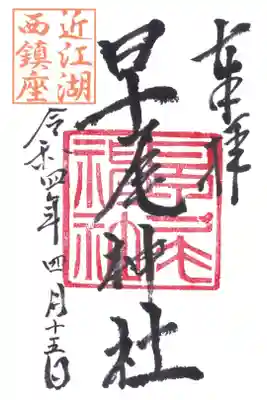 奉拝
早尾神社
近江湖
西鎮座
令和四年四月十五日